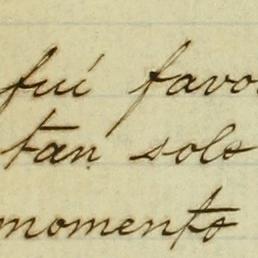 fuí favo
tan solo
momento